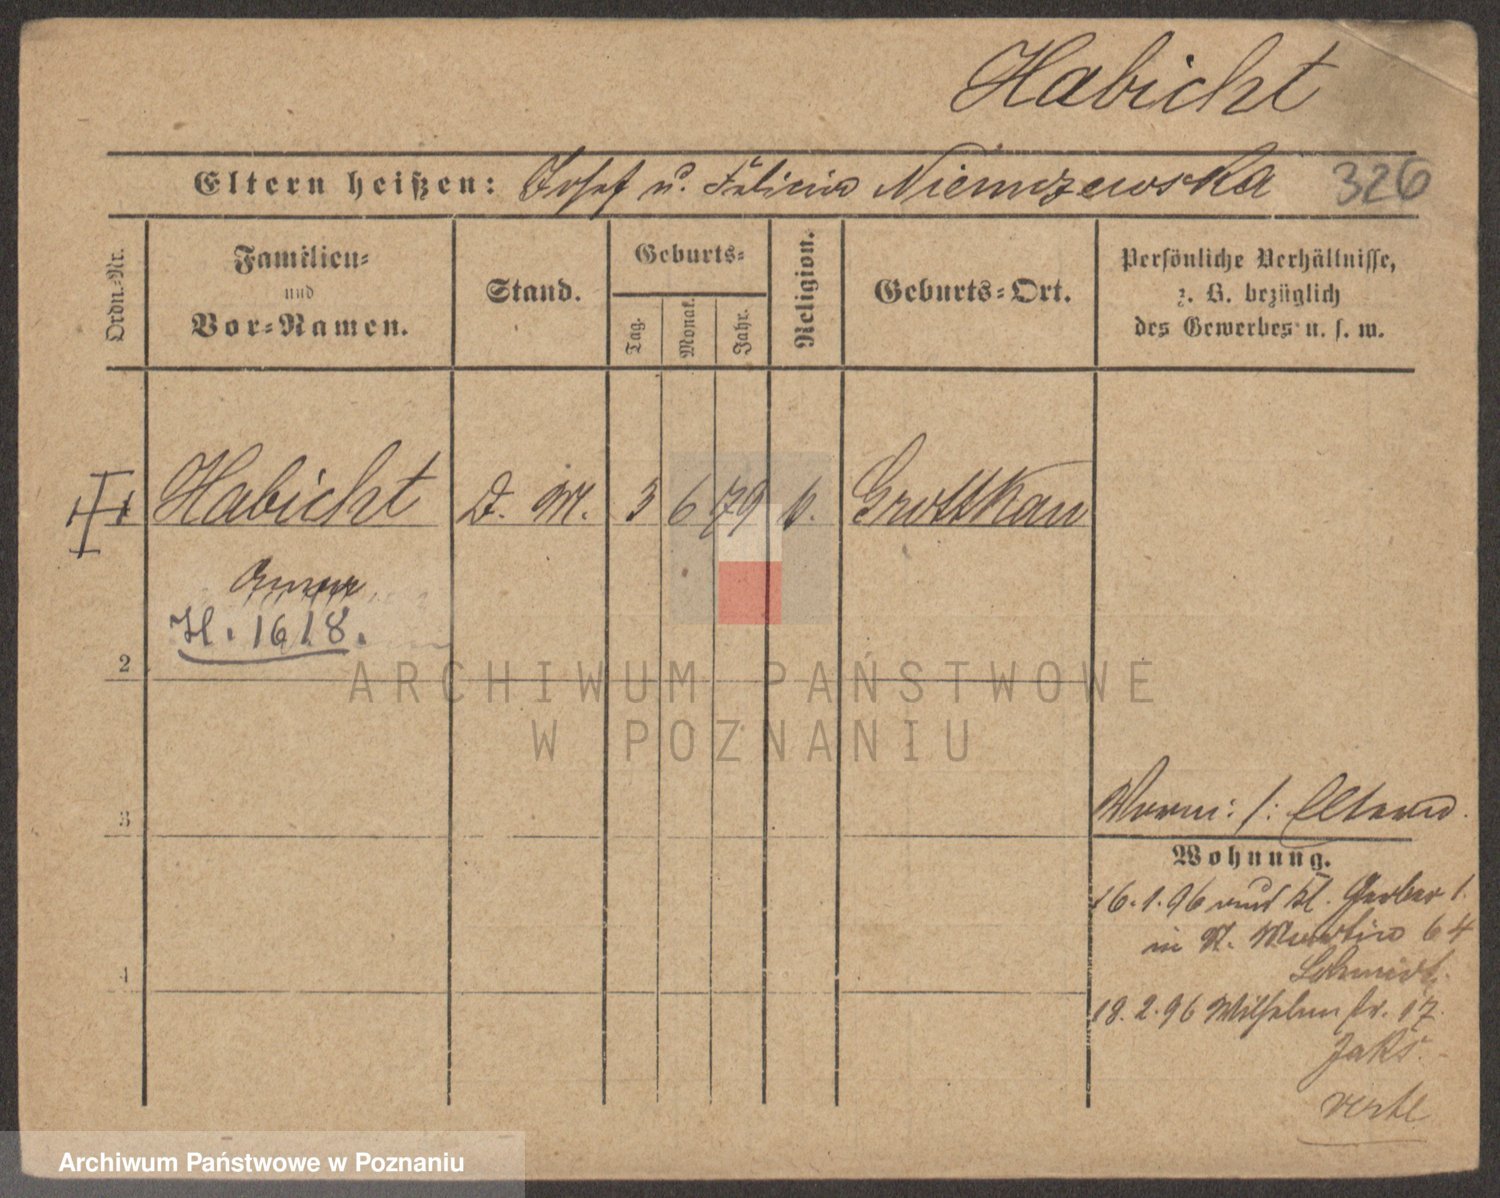 Habicht
Eltern heißen: Josef u. Felicia Niemczewska 326
Ordn.-Nr.
Familien-
und
Vor-Namen.
Stand.
Geburts-
Tag.
Monat.
Jahr.
Religion.
Geburts-Ort.
Persönliche Verhältnisse,
z. B. bezüglich
des Gewerbes u. s. w.
1 Habicht D. M. 3 6 79 k. Grottkau
H. 1618.
2
3
4
Worn: f: Eltern.
Wohnung.
16.1.96 von kl. Gerber 1.
in St. Martin 64
Schmidt.
18.2.96 Wilhelm str. 17.
Jaks.
verte
ARCHIWUM PAŃSTWOWE
W POZNANIU
Archiwum Państwowe w Poznaniu